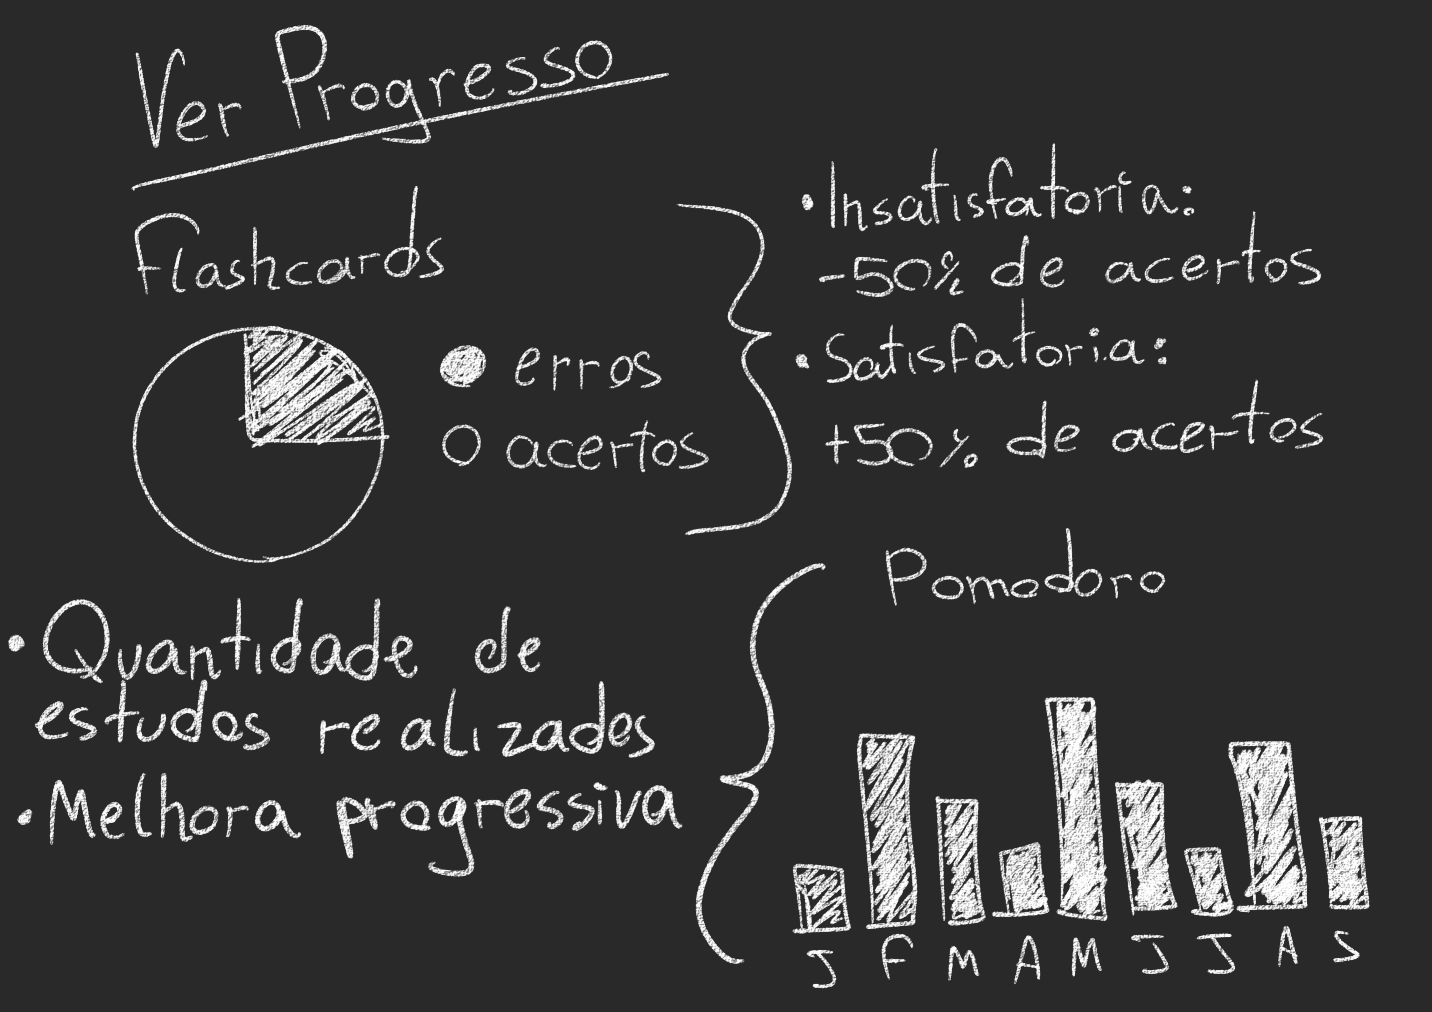 Ver Progresso
Flashcards
erros
acertos
• Insatisfatoria:
-50% de acertos
• Satisfatoria:
+50% de acertos
• Quantidade de
estudos realizados
• Melhora progressiva
Pomodoro
J F M A M J J A S